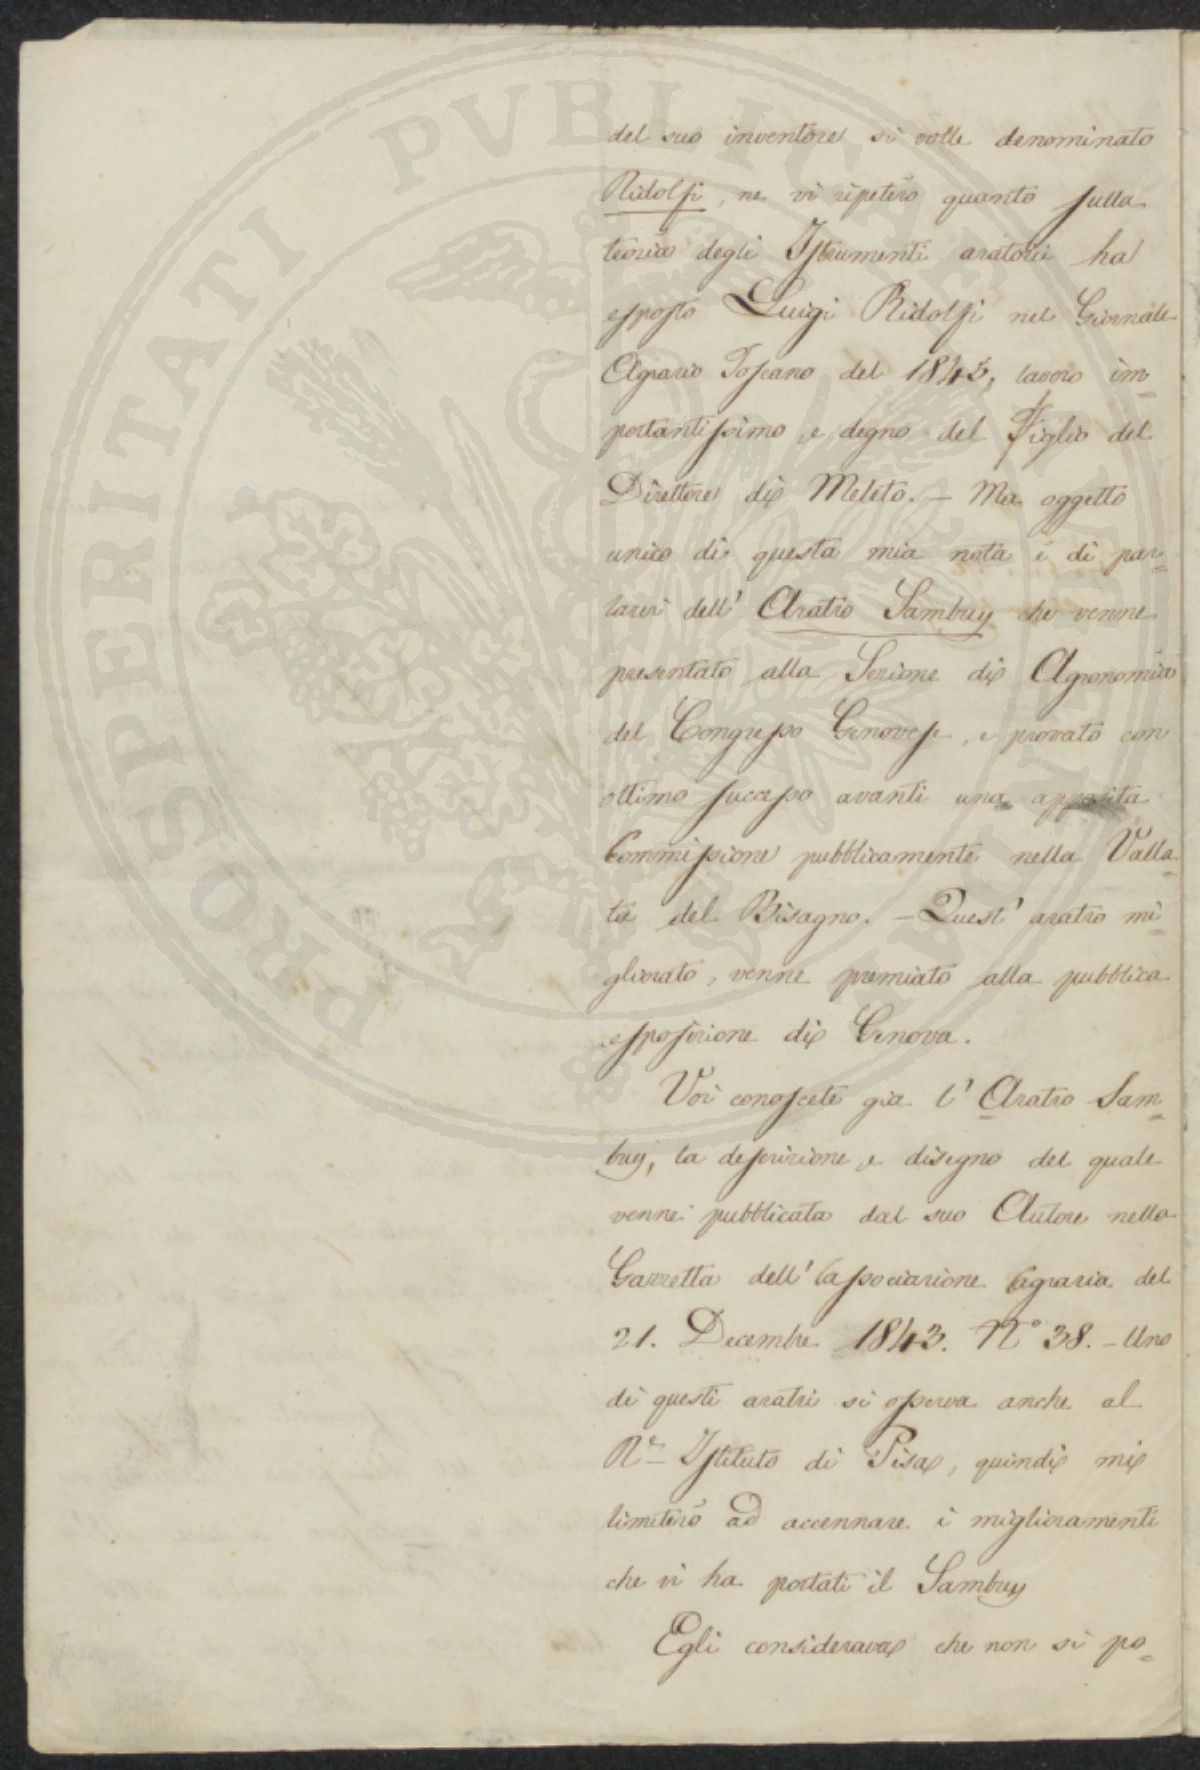 PROSPERITATI PUBLICAE AUGENDAE
del suo inventore si volle denominato
Ridolfi, ne vi ripeterò quanto sulla
teoria degli Istrumenti aratorii ha
esposto Luigi Ridolfi nel Giornale
Agrario Toscano del 1845, lavoro im=
portantissimo e degno del Figlio del
Direttore di Meleto. – Ma oggetto
unico di questa mia nota è di par=
larvi dell' Aratro Sambuy che venne
presentato alla Sezione di Agronomia
del Congresso Genovese, e provato con
ottimo successo avanti una apposita
Commissione pubblicamente nella Valla=
ta del Bisagno. – Quest' aratro mi=
gliorato, venne premiato alla pubblica
esposizione di Genova.
Voi conoscete già l' Aratro Sam=
buy, la descrizione e disegno del quale
venne pubblicata dal suo Autore nella
Gazzetta dell' Associazione Agraria del
21. Decembre 1843. N° 38. – Uno
di questi aratri si osserva anche al
R.e Istituto di Pisa, quindi mi
limiterò ad accennare i miglioramenti
che vi ha portati il Sambuy
Egli considerava che non si po=